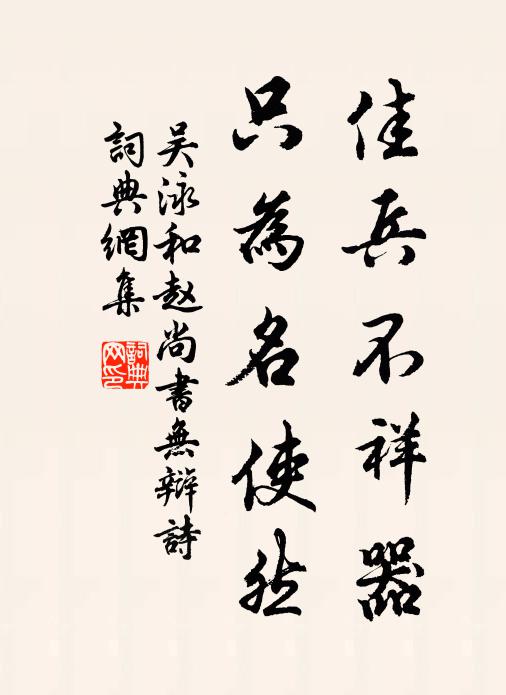 佳兵不祥器
只為名使然
吴泳和赵尚書無辯詩
詞典網集
詞典网印